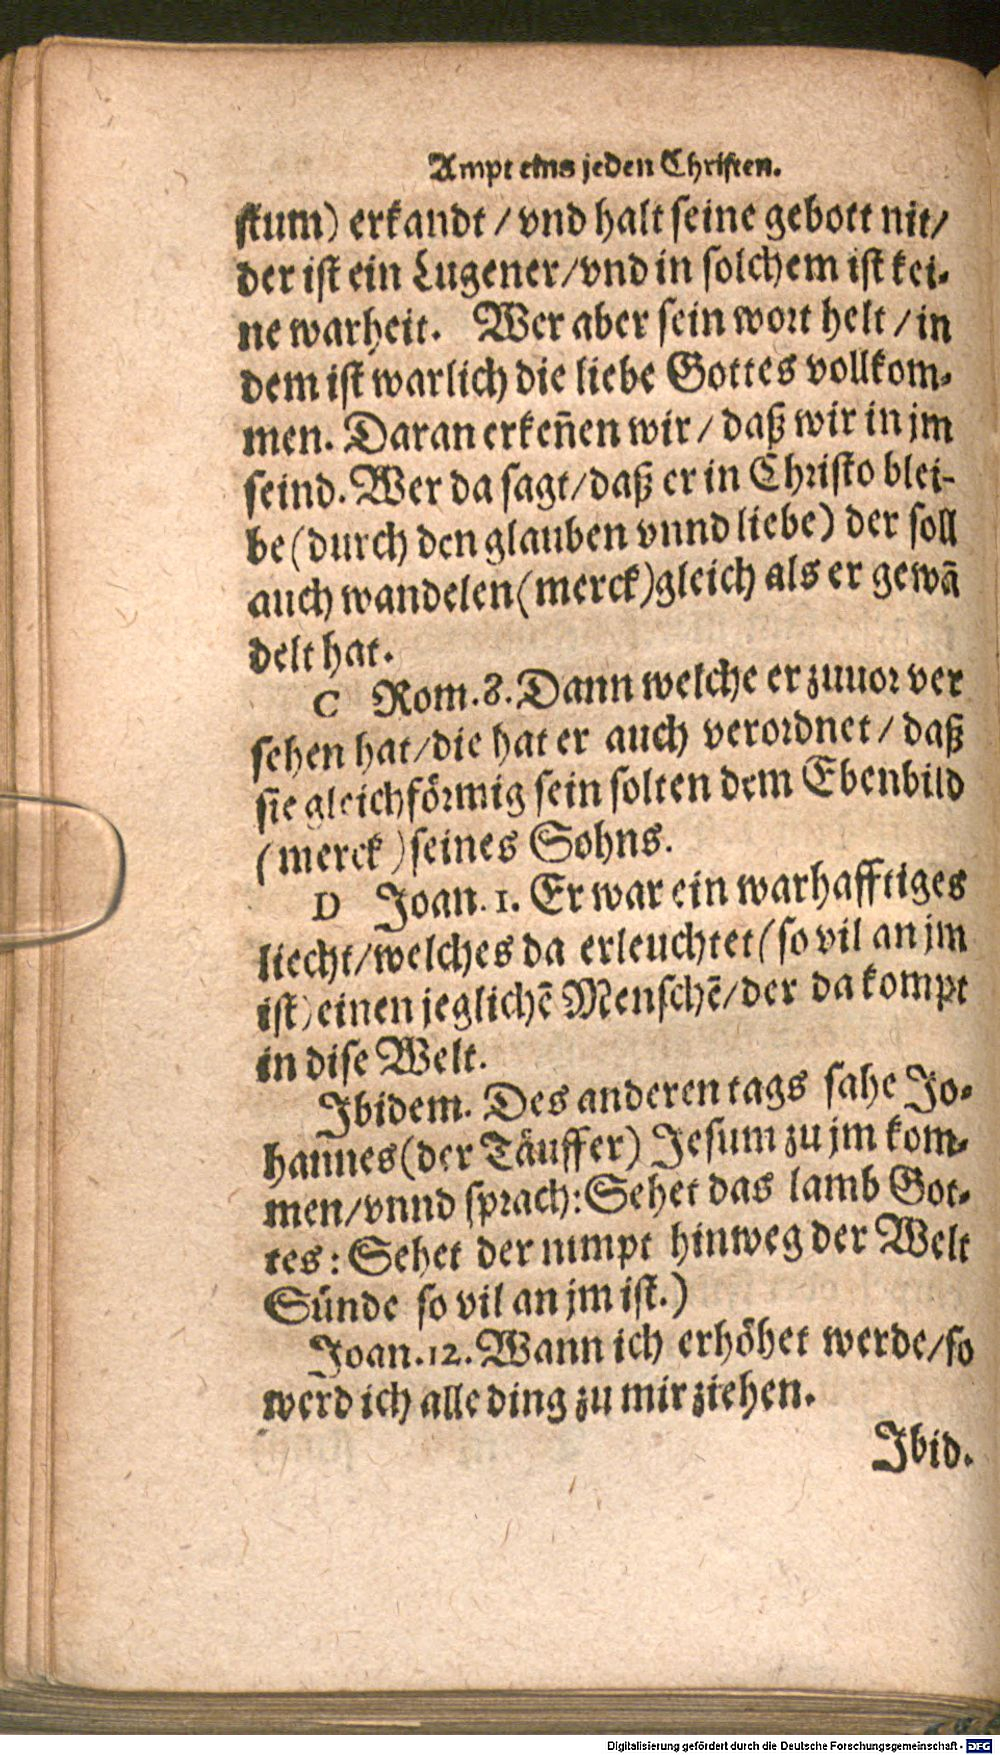 Ampt eins jeden Christen.
stum) erkandt / vnd halt seine gebott nit/
der ist ein Lugener/vnd in solchem ist kei-
ne warheit. Wer aber sein wort helt / in
dem ist warlich die liebe Gottes vollkom-
men. Daran erkeñen wir / daß wir in jm
seind. Wer da sagt/daß er in Christo blei-
be (durch den glauben vnnd liebe) der soll
auch wandelen (merck) gleich als er gewā
delt hat.
C Rom. 8. Dann welche er zuuor ver
sehen hat/die hat er auch verordnet / daß
sie gleichförmig sein solten dem Ebenbild
(merck) seines Sohns.
D Joan. 1. Er war ein warhafftiges
liecht/welches da erleuchtet (so vil an jm
ist) einen jeglichē Menschē/der da kompt
in dise Welt.
Ibidem. Des anderen tags sahe Jo-
hannes (der Täuffer) Jesum zu jm kom-
men/vnnd sprach: Sehet das lamb Got-
tes: Sehet der nimpt hinweg der Welt
Sünde so vil an jm ist.)
Joan. 12. Wann ich erhöhet werde/so
werd ich alle ding zu mir ziehen.
Ibid.
Digitalisierung gefördert durch die Deutsche Forschungsgemeinschaft - DFG